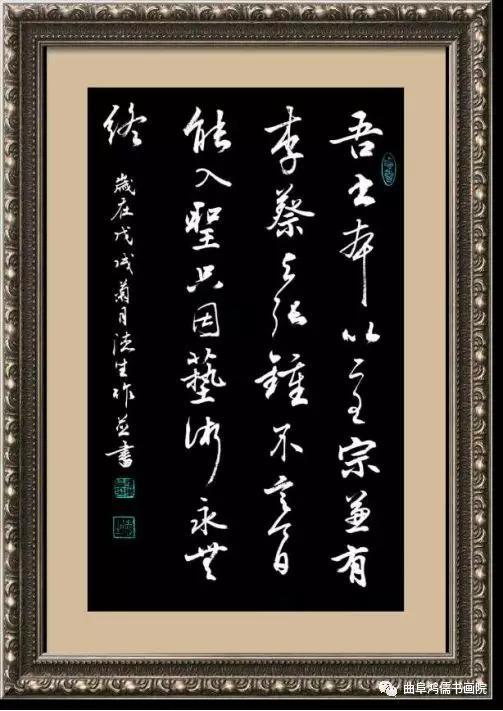 吾书本以二王宗兼有
李蔡与张鍾不言今日
能入聖只因藝術永無
終
歲在戊戌菊月生作並書
曲阜鸿儒书画院